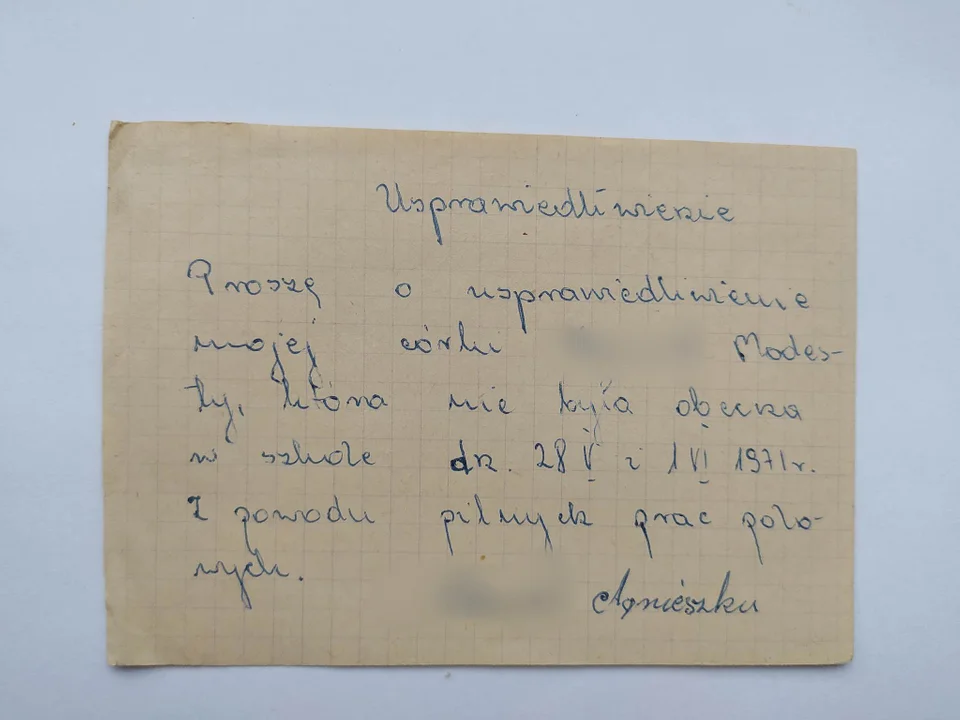 Usprawiedliwienie
Proszę o usprawiedliwienie
mojej córki Modes-
ty, która nie była obecna
w szkole dn. 28 V i 1 VI 1971 r.
Z powodu pilnych prac polo-
wych.
Agnieszka